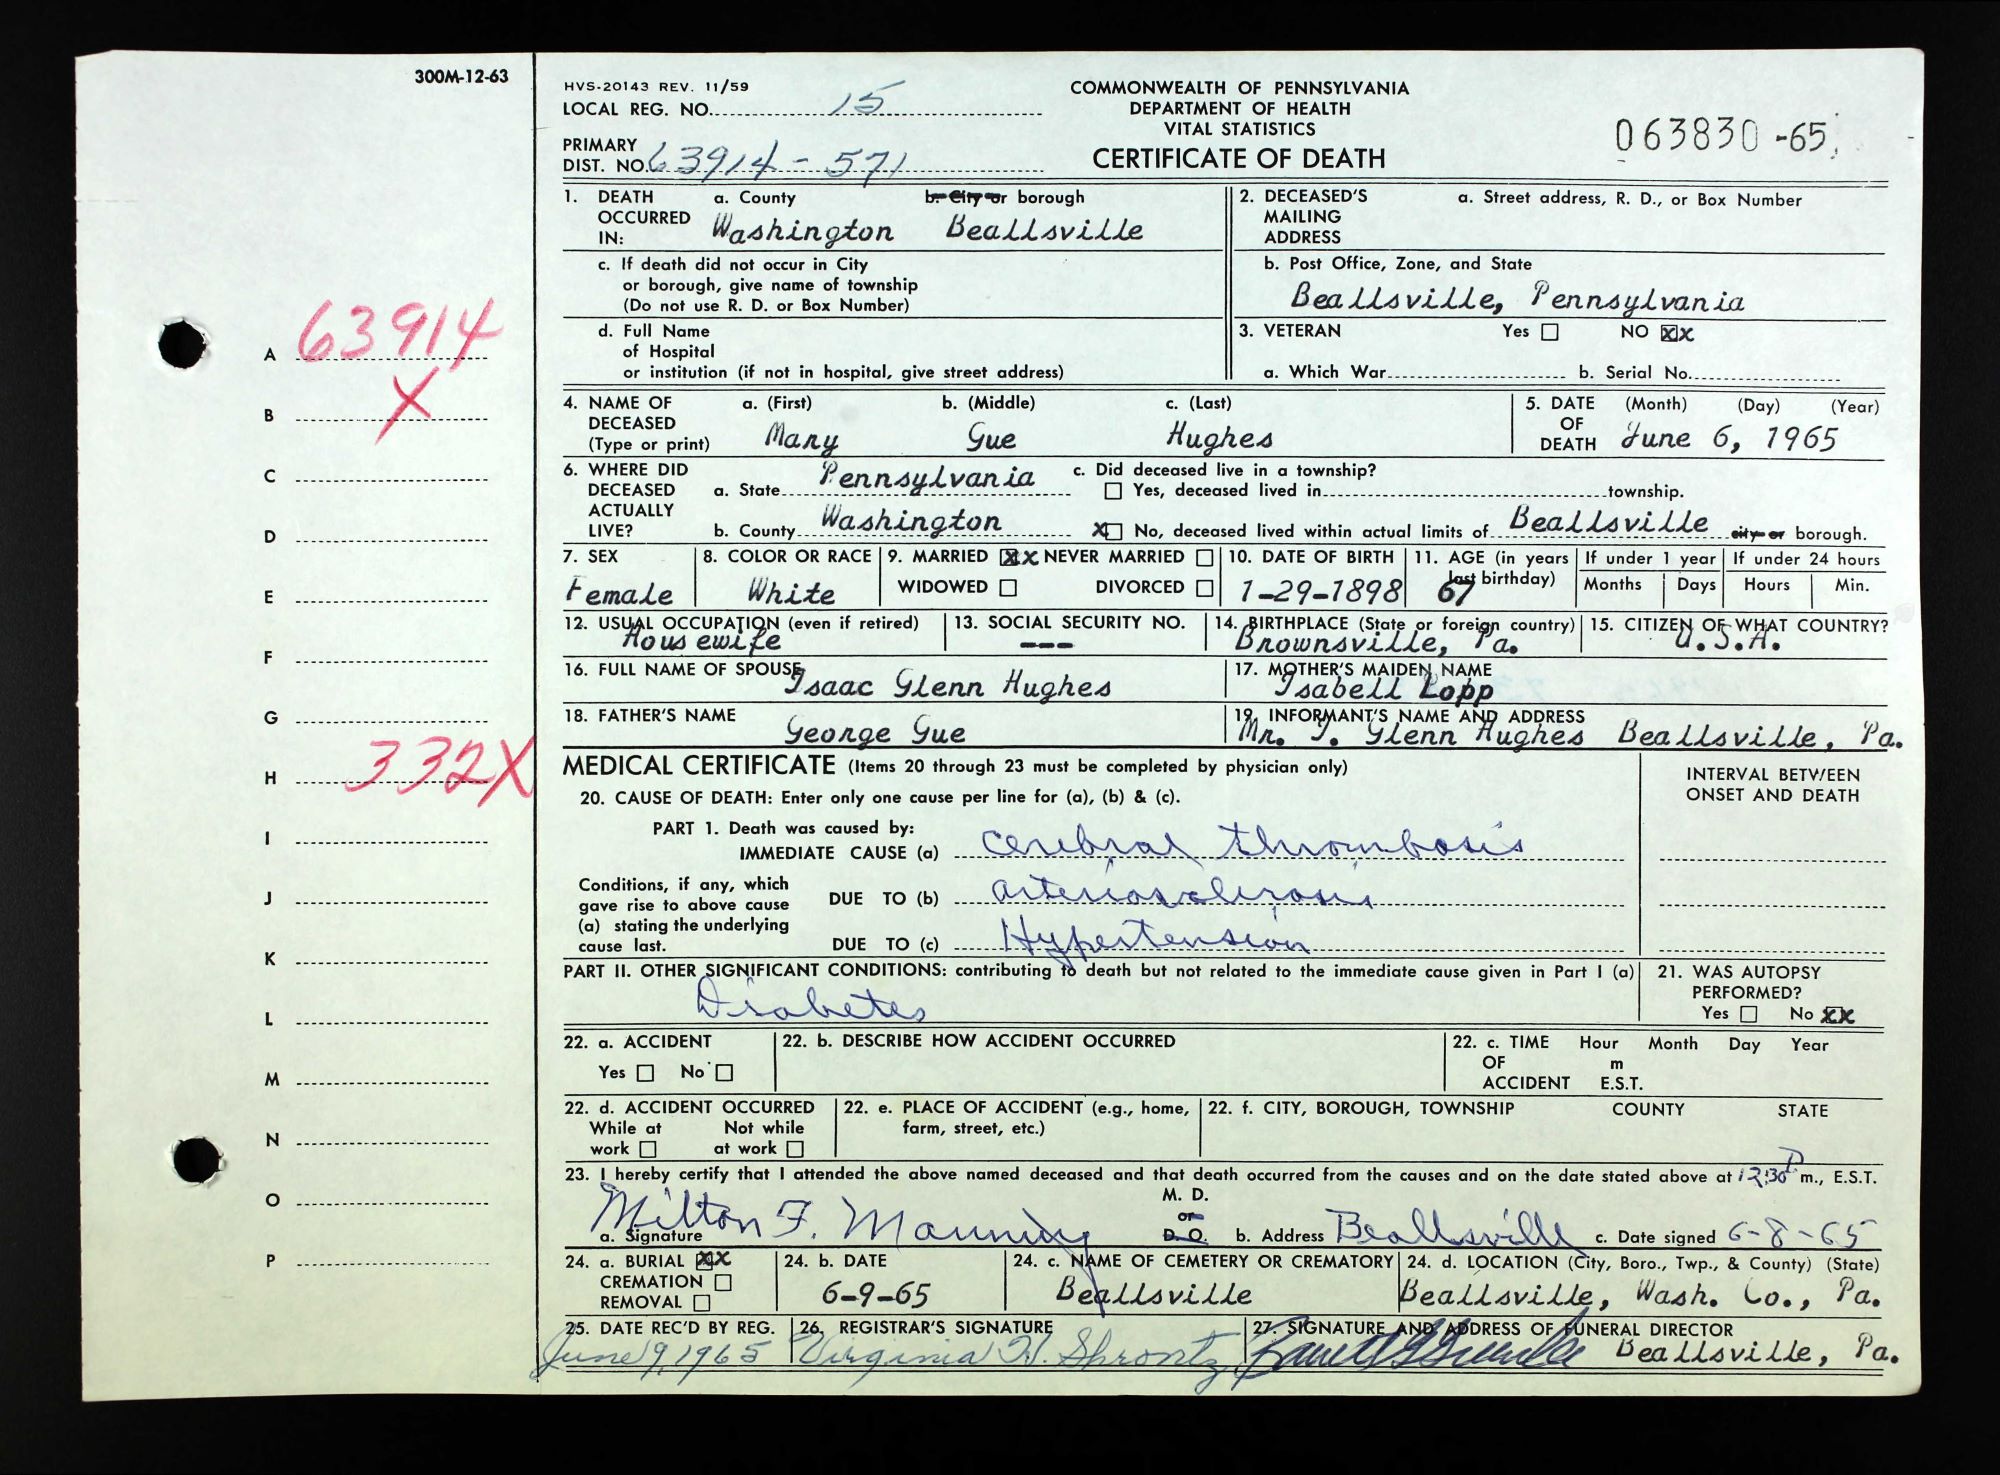 300M-12-63
HVS-20143 REV. 11/59
LOCAL REG. NO. 15
PRIMARY
DIST. NO. 63914-571
COMMONWEALTH OF PENNSYLVANIA
DEPARTMENT OF HEALTH
VITAL STATISTICS
CERTIFICATE OF DEATH
063830-65
A 63914
B X
C
D
E
F
G
H 332X
I
J
K
L
M
N
O
P
1. DEATH OCCURRED IN: a. County Washington
b. City or borough Beallsville
c. If death did not occur in City
or borough, give name of township
(Do not use R. D. or Box Number)
d. Full Name
of Hospital
or institution (if not in hospital, give street address)
2. DECEASED'S MAILING ADDRESS a. Street address, R. D., or Box Number
b. Post Office, Zone, and State
Beallsville, Pennsylvania
3. VETERAN Yes NO XX
a. Which War b. Serial No.
4. NAME OF DECEASED (Type or print) a. (First) Mary b. (Middle) Gue c. (Last) Hughes
5. DATE OF DEATH (Month) (Day) (Year) June 6, 1965
6. WHERE DID DECEASED ACTUALLY LIVE? a. State Pennsylvania
b. County Washington
c. Did deceased live in a township?
Yes, deceased lived in township.
X No, deceased lived within actual limits of Beallsville city or borough.
7. SEX Female
8. COLOR OR RACE White
9. MARRIED XX NEVER MARRIED
WIDOWED DIVORCED
10. DATE OF BIRTH 1-29-1898
11. AGE (in years last birthday) 67
If under 1 year Months Days
If under 24 hours Hours Min.
12. USUAL OCCUPATION (even if retired) Housewife
13. SOCIAL SECURITY NO. ---
14. BIRTHPLACE (State or foreign country) Brownsville, Pa.
15. CITIZEN OF WHAT COUNTRY? U.S.A.
16. FULL NAME OF SPOUSE Isaac Glenn Hughes
17. MOTHER'S MAIDEN NAME Isabell Lopp
18. FATHER'S NAME George Gue
19. INFORMANT'S NAME AND ADDRESS Mr. I. Glenn Hughes Beallsville, Pa.
MEDICAL CERTIFICATE (Items 20 through 23 must be completed by physician only)
INTERVAL BETWEEN
ONSET AND DEATH
20. CAUSE OF DEATH: Enter only one cause per line for (a), (b) & (c).
PART 1. Death was caused by:
IMMEDIATE CAUSE (a) Cerebral thrombosis
Conditions, if any, which
gave rise to above cause
(a) stating the underlying
cause last.
DUE TO (b) arteriosclerosis
DUE TO (c) Hypertension
PART II. OTHER SIGNIFICANT CONDITIONS: contributing to death but not related to the immediate cause given in Part I (a)
Diabetes
21. WAS AUTOPSY
PERFORMED?
Yes No XX
22. a. ACCIDENT
Yes No
22. b. DESCRIBE HOW ACCIDENT OCCURRED
22. c. TIME OF ACCIDENT Hour Month Day Year
m
E.S.T.
22. d. ACCIDENT OCCURRED
While at work Not while at work
22. e. PLACE OF ACCIDENT (e.g., home,
farm, street, etc.)
22. f. CITY, BOROUGH, TOWNSHIP COUNTY STATE
23. I hereby certify that I attended the above named deceased and that death occurred from the causes and on the date stated above at 12:30 P m., E.S.T.
a. Signature Milton F. Manning
M. D.
or
D. O.
b. Address Beallsville c. Date signed 6-8-65
24. a. BURIAL XX
CREMATION
REMOVAL
24. b. DATE
6-9-65
24. c. NAME OF CEMETERY OR CREMATORY
Beallsville
24. d. LOCATION (City, Boro., Twp., & County) (State)
Beallsville, Wash. Co., Pa.
25. DATE REC'D BY REG.
June 9, 1965
26. REGISTRAR'S SIGNATURE
Virginia H. Shrontz
27. SIGNATURE AND ADDRESS OF FUNERAL DIRECTOR
Beallsville, Pa.